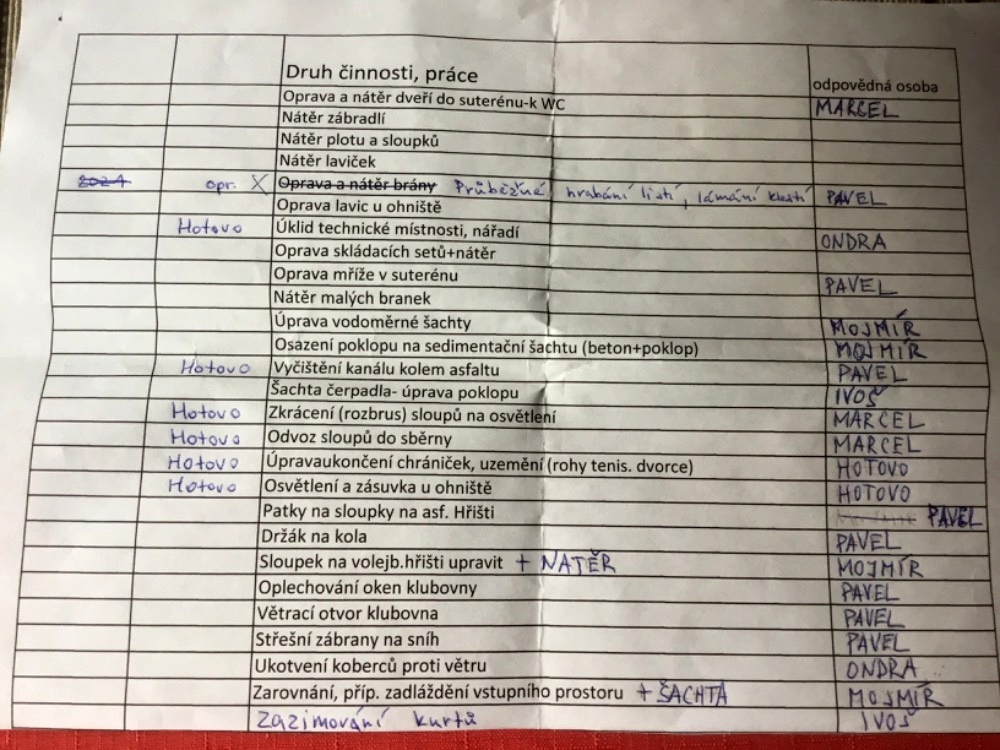 Druh činnosti, práce odpovědná osoba
Oprava a nátěr dveří do suterénu-k WC MARCEL
Nátěr zábradlí
Nátěr plotu a sloupků
Nátěr laviček
2024 opr. X Oprava a nátěr brány Průběžné hrabání listí, lámání klestí PAVEL
Oprava lavic u ohniště
Hotovo Úklid technické místnosti, nářadí
Oprava skládacích setů+nátěr ONDRA
Oprava mříže v suterénu
Nátěr malých branek PAVEL
Úprava vodoměrné šachty MOJMÍR
Osazení poklopu na sedimentační šachtu (beton+poklop) MOJMÍR
Hotovo Vyčištění kanálu kolem asfaltu PAVEL
Šachta čerpadla- úprava poklopu IVOŠ
Hotovo Zkrácení (rozbrus) sloupů na osvětlení MARCEL
Hotovo Odvoz sloupů do sběrny MARCEL
Hotovo Úpravaukončení chrániček, uzemění (rohy tenis. dvorce) HOTOVO
Hotovo Osvětlení a zásuvka u ohniště HOTOVO
Patky na sloupky na asf. Hřišti PAVEL
Držák na kola PAVEL
Sloupek na volejb.hřišti upravit + NATĚR MOJMÍR
Oplechování oken klubovny PAVEL
Větrací otvor klubovna PAVEL
Střešní zábrany na sníh PAVEL
Ukotvení koberců proti větru ONDRA
Zarovnání, příp. zadláždění vstupního prostoru + ŠACHTA MOJMÍR
Zazimování kurtů IVOŠ